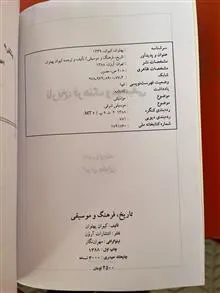 سرشناسه : پهلوان، کیوان، ۱۳۳۹
عنوان و پدیدآور : تاریخ، فرهنگ و موسیقی / تألیف و ترجمه کیوان پهلوان
مشخصات نشر : تهران: آرون، ۱۳۸۸
مشخصات ظاهری : ۲۰۸ ص: مصور.
شابک
وضعیت فهرست‌نویسی : فیپا
یادداشت : کتابنامه
موضوع : موسیقی
موضوع : موسیقی شرقی
رده‌بندی کنگره
رده‌بندی دیویی : ۷۸۱
شماره کتابخانه ملی
تاریخ، فرهنگ و موسیقی
تألیف: کیوان پهلوان
ناشر: انتشارات آرون
لیتوگرافی: مهران‌نگار
چاپ اول: ۱۳۸۸
چاپخانه حیدری: ۲۰۰۰ نسخه
۳۵۰۰ تومان